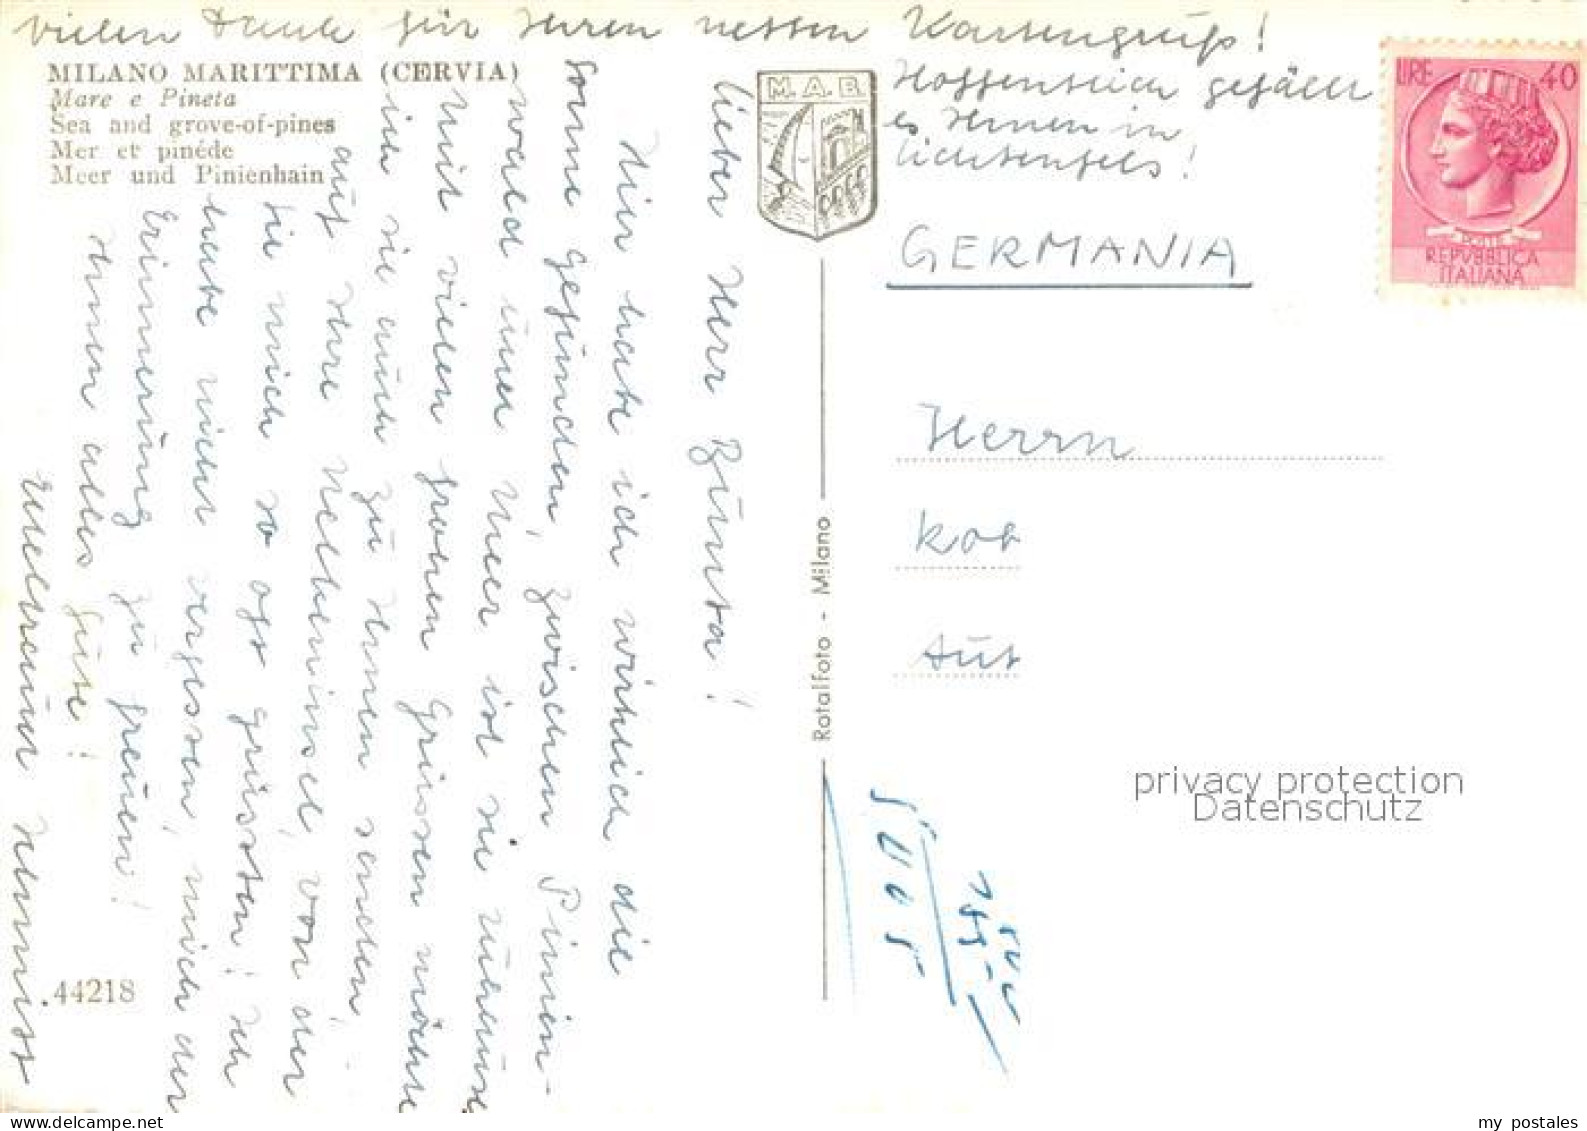 vielen Dank für Ihren netten Kartengruß!
MILANO MARITTIMA (CERVIA)
Mare e Pineta
Sea and grove-of-pines
Mer et pinéde
Meer und Pinienhain
lieber Herr Zünta!
Hier habe ich wirklich die
Sonne gefunden, zwischen Pinien-
wald und Meer ist sie zuhause
Mit vielen frohen Grüssen möchte
ich sie auch zu Ihnen senden,
auf Ihre Nebelinsel, von der
Sie mich so oft grüssten! Ich
habe nicht vergessen, mich der
Erinnerung zu freuen!
Ihnen alles Gute!
44218
M. A. B.
Rotalfoto - Milano
Hoffentlich gefällt
es Ihnen in
Lichtenfels!
GERMANIA
LIRE 40
POSTE
REPVBBLICA
ITALIANA
Herrn
privacy protection
Datenschutz
my postales